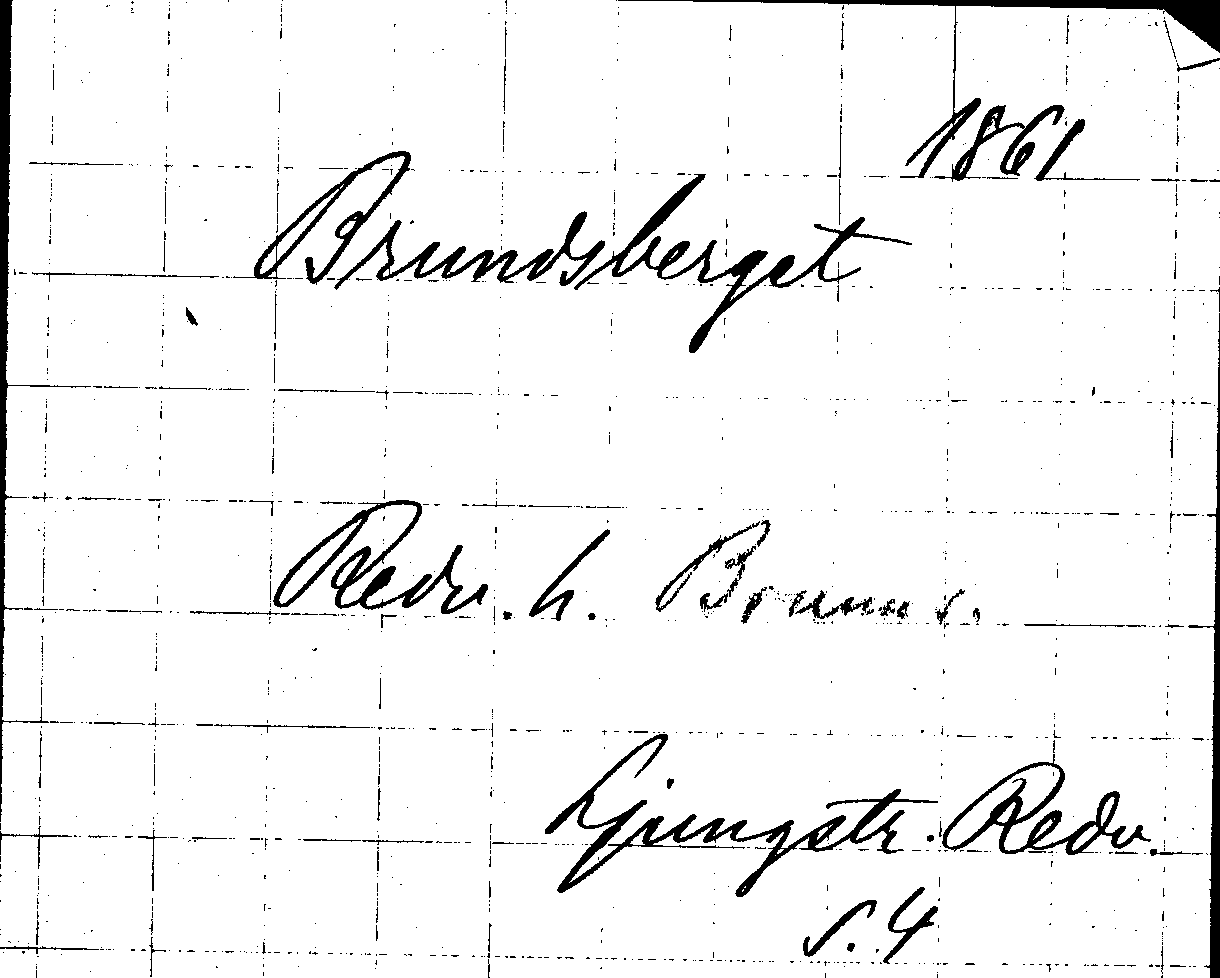 1861
Brundsberget
Redv. h. Brunns.
Ljungstr. Redv.
s. 4